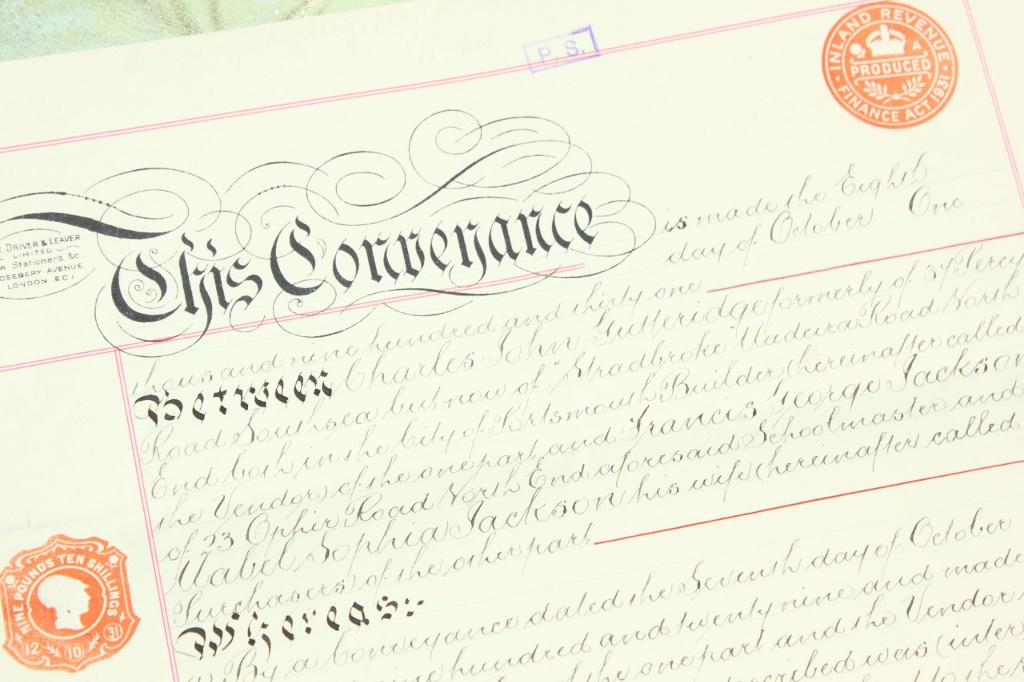 P. S.
INLAND REVENUE
A
PRODUCED
FINANCE ACT 1931
DRIVER & LEAVER
LIMITED
Law Stationers &c.
ROSEBERY AVENUE
LONDON E.C.1
This Conveyance is made the Eighth
day of October One
thousand nine hundred and thirty one
Between Charles John Gutteridge formerly of 37
Road Southsea but now of "Stradbroke" Madeira Road North
End both in the City of Portsmouth Builder (hereinafter called
the Vendor) of the one part and Francis George Jackson
of 33 Ophir Road North End aforesaid Schoolmaster and
Mabel Sophia Jackson his wife (hereinafter called
Purchasers) of the other part
Whereas:-
By a Conveyance dated the Seventh day of October
nine hundred and twenty nine and made
of the one part and the Vendor
described was (inter
NINE POUNDS TEN SHILLINGS
12 10 31